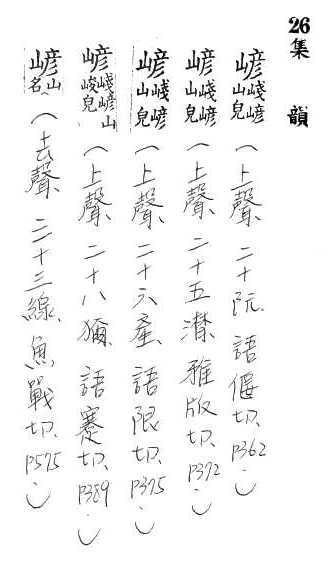 26集韻
嵃 嵃嵃山皃(上聲、二十阮、語偃切、P362。)
嵃 嵃嵃山皃(上聲、二十五潸、雅版切、P372。)
嵃 嵃嵃山皃(上聲、二十六產、語限切、P375。)
嵃 嵃嵃山峻皃(上聲、二十八獮、語蹇切、P389。)
嵃 山名(去聲、三十三線、魚戰切、P575。)